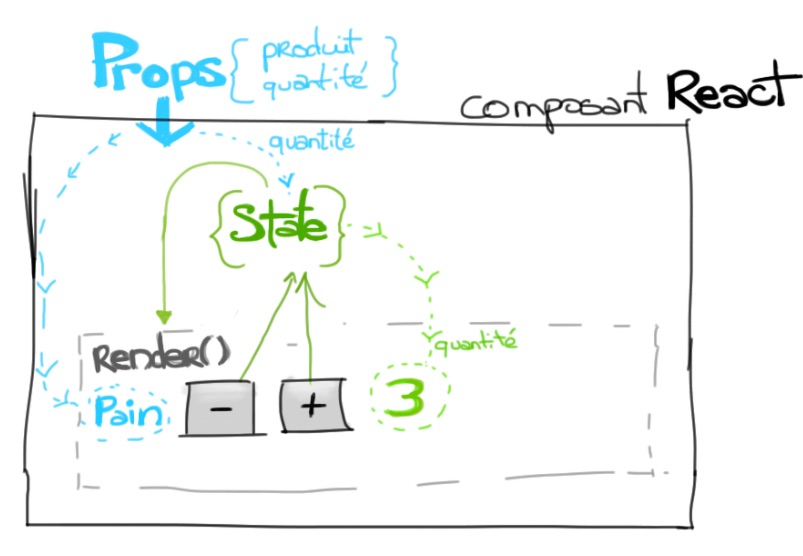 Props { produit
quantité }
composant React
quantité
{State}
Render()
quantité
Pain - + 3